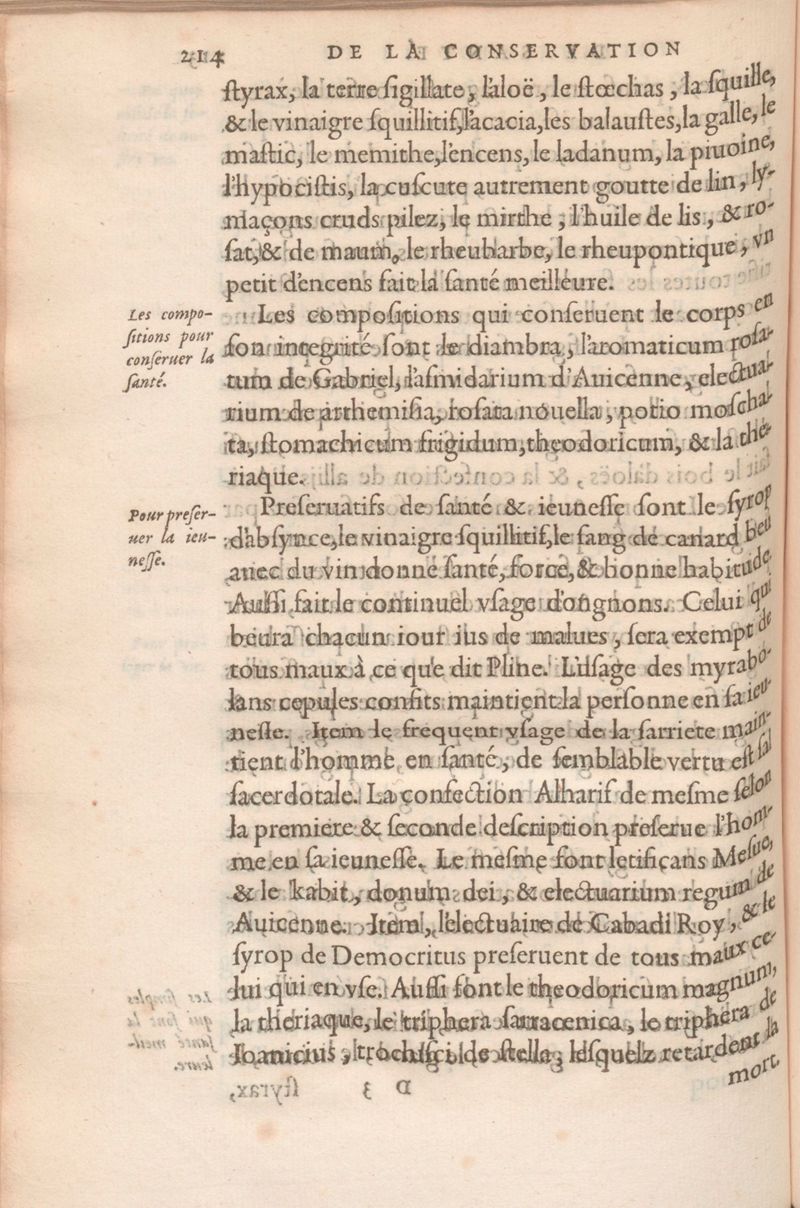 214 DE LA CONSERVATION
ſtyrax, la terre ſigillate, l'aloë, le ſtœchas, la ſquille,
& le vinaigre ſquillitif, l'acacia, les balauſtes, la galle, le
maſtic, le memithe, l'encens, le ladanum, la piuoine,
l'hypociſtis, la cuſcute autrement goutte de lin, ly-
maçons cruds pilez, le mirthe, l'huile de lis, & ro-
ſat, & de maum, le rheubarbe, le rheupontique, vn
petit d'encens fait la ſanté meilleure.
Les compo-
ſitions pour
conſeruer la
ſanté.
Les compoſitions qui conſeruent le corps en
ſon integrité ſont le diambra, l'aromaticum roſa-
tum de Gabriel, l'aſmidarium d'Auicenne, electua-
rium de arthemiſia, roſata nouella, potio moſcha-
ta, ſtomachicum frigidum, theodoricum, & la the-
riaque.
Pour preſer-
uer la ieu-
neſſe.
Preſeruatifs de ſanté & ieuneſſe ſont le ſyrop
d'abſynce, le vinaigre ſquillitif, le ſang de canard beu
auec du vin donne ſanté, force, & bonne habitude.
Auſſi fait le continuel vſage d'ongnons. Celui qui
beura chacun iour ius de malues, ſera exempt de
tous maux à ce que dit Pline. L'uſage des myrabo-
lans cepules confits maintient la perſonne en ſa ieu-
neſſe. Item le frequent vſage de la ſarriete main-
tient l'homme en ſanté, de ſemblable vertu eſt ſal
ſacerdotale. La confection Alhariſ de meſme ſelon
la premiere & ſeconde deſcription preſerue l'hom-
me en ſa ieuneſſe. Le meſme font letificans Meſue,
& le kabit, donum dei, & electuarium regum de
Auicenne. Item, l'electuaire de Cabadi Roy, & le
ſyrop de Democritus preſeruent de tous maux ce-
lui qui en vſe. Auſſi font le theodoricum magnum,
la theriaque, le triphera ſarracenica, le triphera de
Ioanicius, trochiſci de ſtella, leſquelz retardent la
mort.